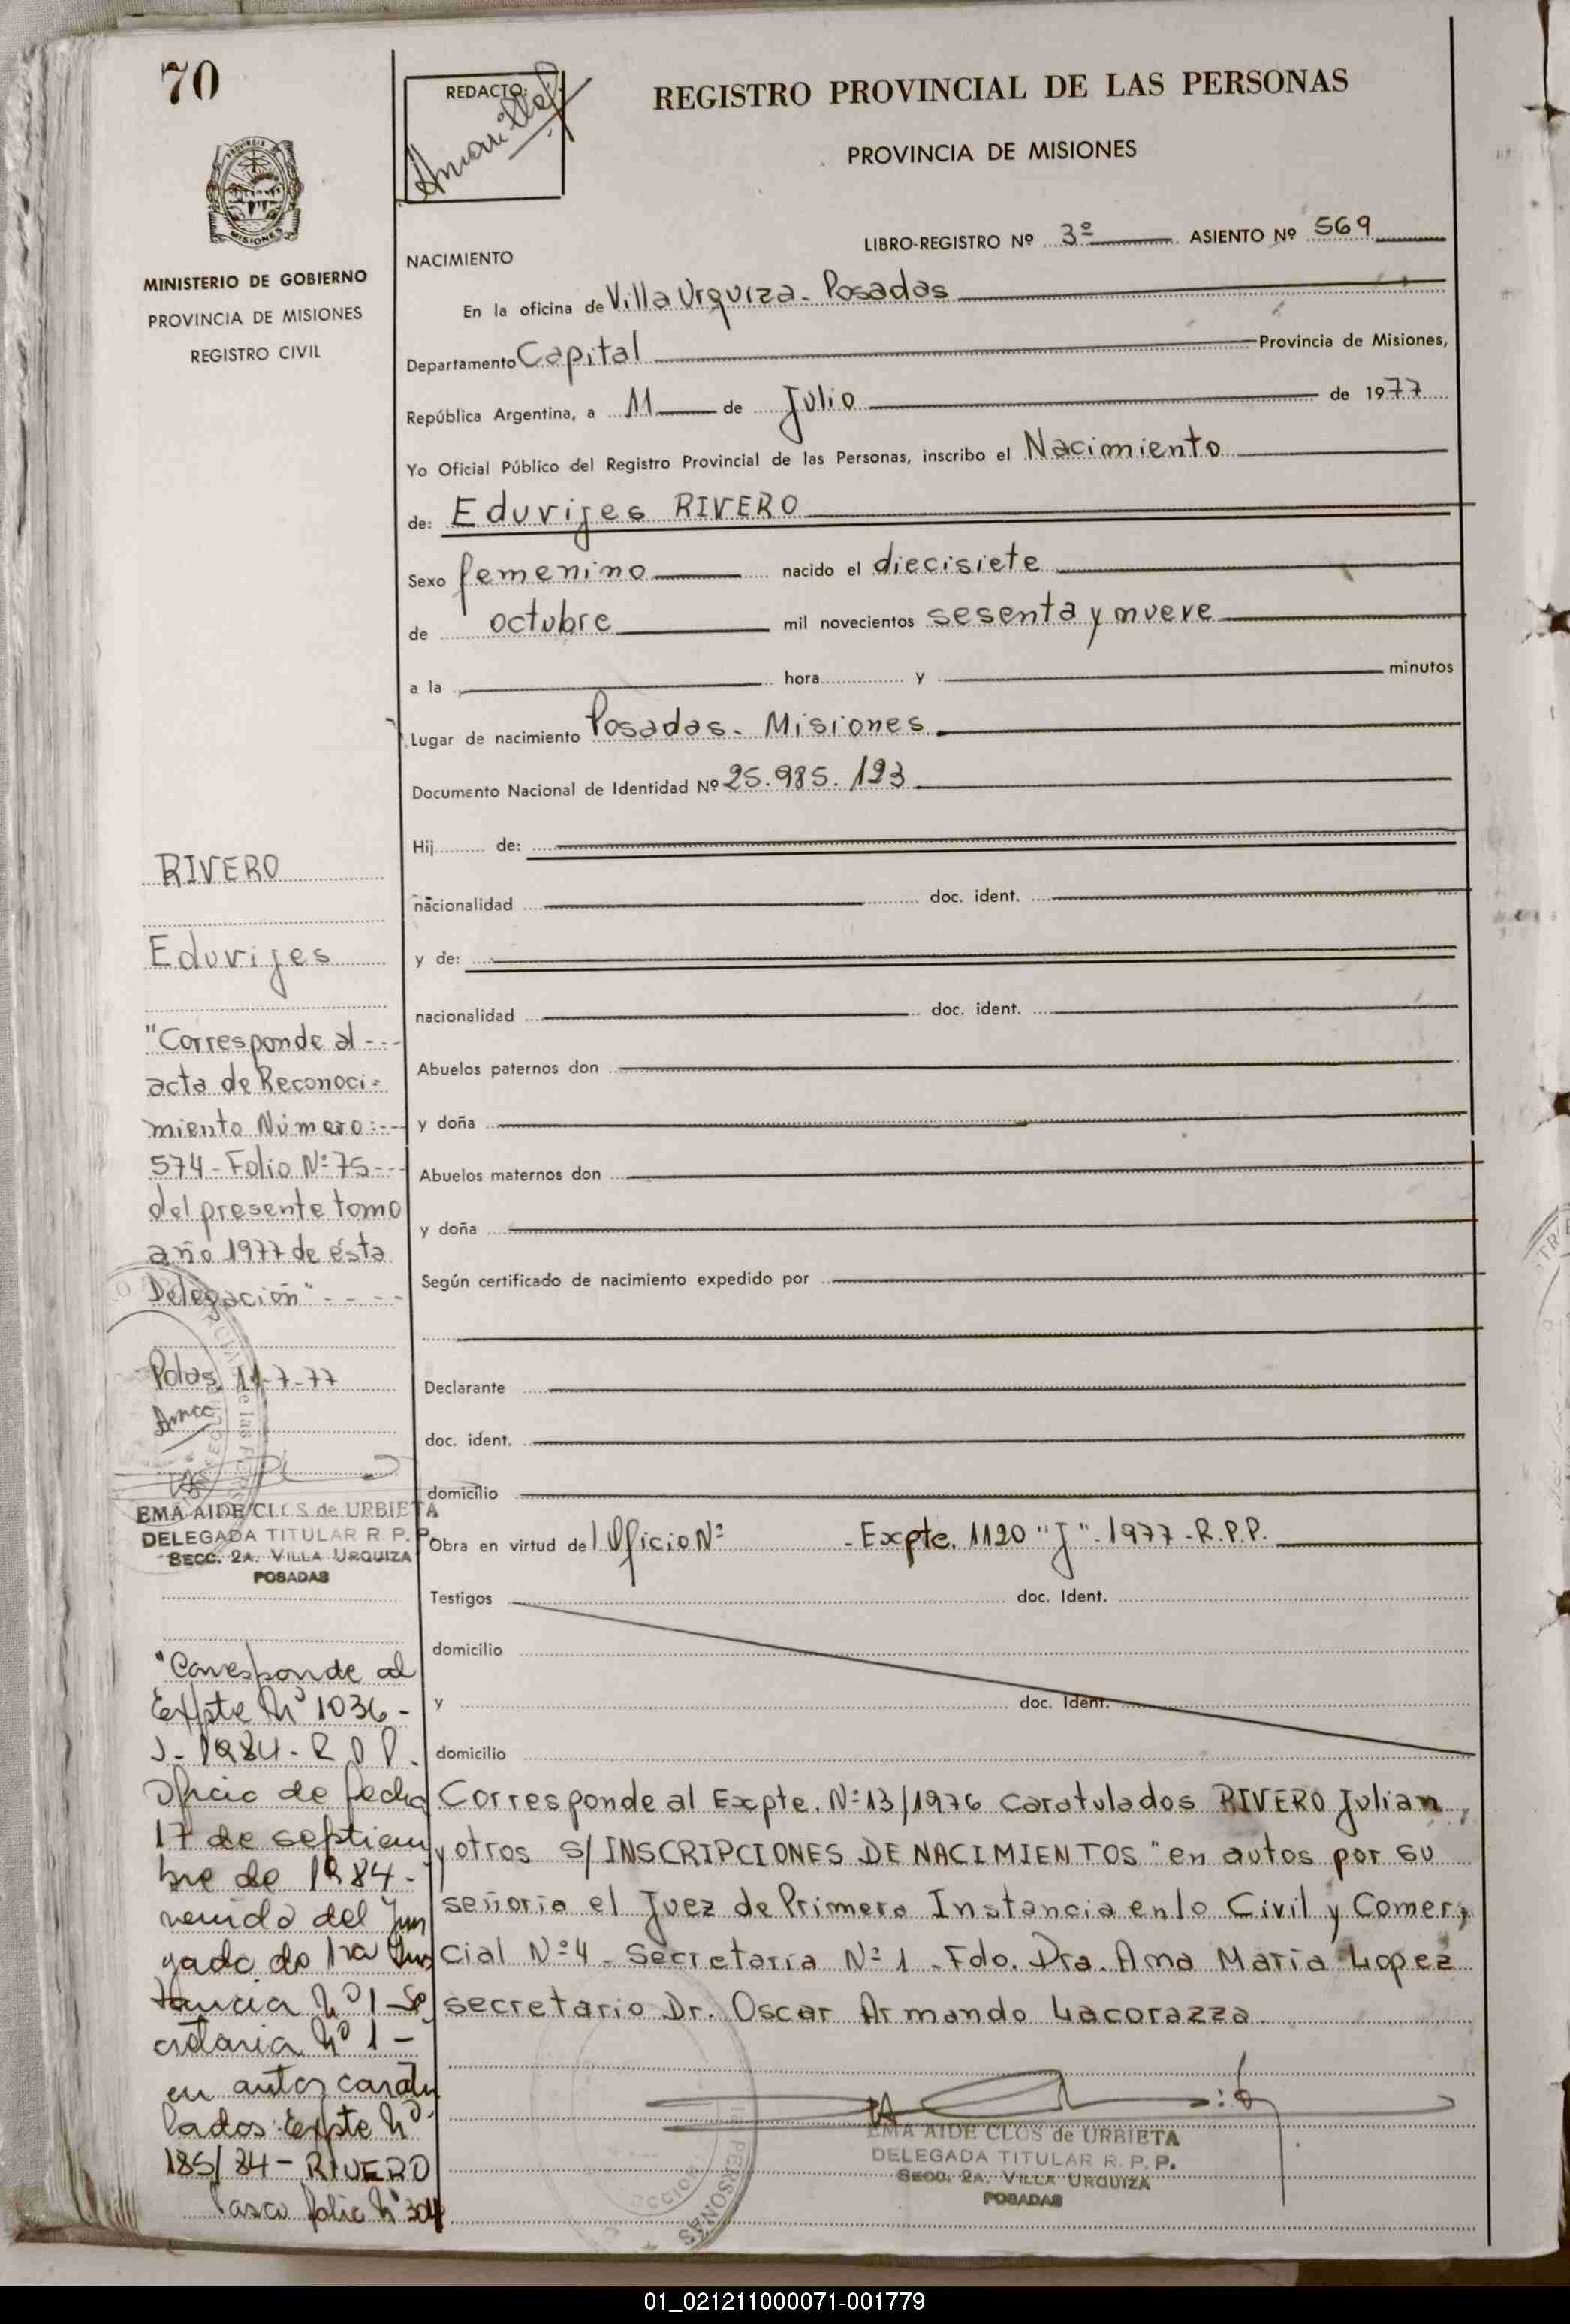 70
REDACTO:
REGISTRO PROVINCIAL DE LAS PERSONAS
PROVINCIA DE MISIONES
MISIONES
MINISTERIO DE GOBIERNO
PROVINCIA DE MISIONES
REGISTRO CIVIL
LIBRO-REGISTRO Nº 3º ASIENTO Nº 569
NACIMIENTO
En la oficina de Villa Urquiza - Posadas
Departamento Capital Provincia de Misiones,
República Argentina, a 11 de Julio de 1977
Yo Oficial Público del Registro Provincial de las Personas, inscribo el Nacimiento
de: Eduvijes RIVERO
Sexo femenino nacido el diecisiete
de octubre mil novecientos sesenta y nueve
a la hora y minutos
Lugar de nacimiento Posadas - Misiones
Documento Nacional de Identidad Nº 25.985.123
Hij de:
nacionalidad doc. ident.
y de:
nacionalidad doc. ident.
Abuelos paternos don
y doña
Abuelos maternos don
y doña
Según certificado de nacimiento expedido por
Declarante
doc. ident.
domicilio
Obra en virtud de l Oficio Nº - Expte. 1120 "J" - 1977 - R.P.P.
Testigos doc. Ident.
domicilio
y doc. Ident.
domicilio
Corresponde al Expte. Nº 13/1976 caratulados RIVERO Julian
y otros S/ INSCRIPCIONES DE NACIMIENTOS" en autos por su
señoria el Juez de Primera Instancia en lo Civil y Comer
cial Nº 4 - Secretaría Nº 1 - Fdo. Dra. Ana María Lopez
secretario Dr. Oscar Armando Lacorazza
EMA AIDE CLOS de URBIETA
DELEGADA TITULAR R. P. P.
SECC. 2A. VILLA URQUIZA
POSADAS
PERSONAS
RIVERO
Eduvijes
"Corresponde al ---
acta de Reconoci-
miento Número: ---
574 - Folio Nº 75 ---
del presente tomo
año 1977 de ésta
Delegación" - - - -
Pdas, 11-7-77
EMA AIDE CLOS de URBIETA
DELEGADA TITULAR R. P. P.
SECC. 2A. VILLA URQUIZA
POSADAS
"Corresponde al
Expte Nº 1036 -
J - 1984 - R.P.P.
Oficio de fecha
17 de septiem
bre de 1984 -
venido del Juz
gado de 1ra Ins
tancia Nº 1 - Se
cretaria Nº 1 -
en autos caratu
lados: Expte Nº
185/84 - RIVERO
Pasa folio Nº 304
01_021211000071-001779